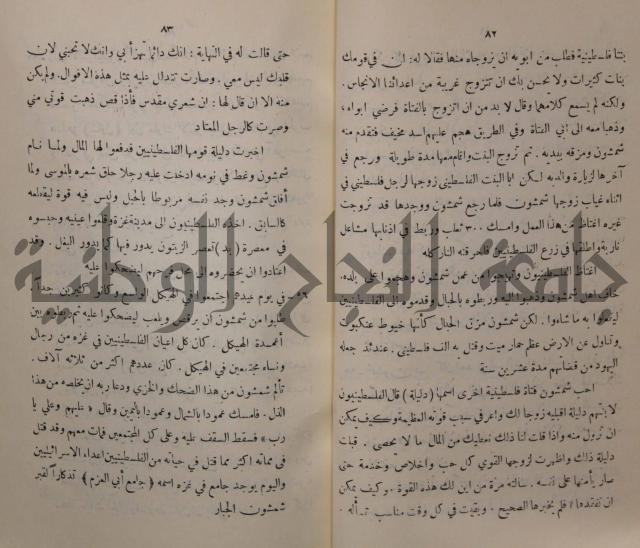 ٨٢
بنتا فلسطينية فطلب من ابويه ان يزوجاه منها فقالا له: ان في قومك
بنات كثيرات ولا يحسن بك ان تتزوج غريبة من اعدائنا الانجاس.
ولكنه لم يسمع كلامهما وقال لا بد من ان اتزوج بالفتاة فرضي ابواه،
وذهبا معه الى ابي الفتاة وفي الطريق هجم عليهم اسد مخيف فتقدم منه
شمشون ومزقه بيديه. ثم تزوج البنت واقام معها مدة طويلة ورجع في
آخرها لزيارة والديه لكن ابا البنت الفلسطيني زوجها لرجل فلسطيني في
اثناء غياب زوجها شمشون فلما رجع شمشون ووجدها قد تزوجت
غيره اغتاظ من هذا العمل وامسك ٣٠٠ ثعلب وربط في اذنابها مشاعل
نارية واطلقها في زرع الفلسطينيين فاحرقته النار كله
اغتاظ الفلسطينيون من عمل شمشون وهجموا على بلده،
اهل شمشون وذهبوا اليه وربطوه بالحبال وقدموه الى الفلسطينيين
ليفعلوا به ما شاءوا. لكن شمشون مزق الحبال كأنها خيوط عنكبوت
وتناول عن الارض عظم حمار ميت وقتل به الف فلسطيني. عندئذ جعله
اليهود من قضاتهم مدة عشرين سنة
احب شمشون فتاة فلسطينية اخرى اسمها (دليلة) قال الفلسطينيون
لابنتهم دليلة اقبليه زوجا لك واعرفي سبب قوته العظيمة وكيف يمكن
ان تزول منه واذا قلت لنا ذلك نعطيك من المال ما لا يحصى. قبلت
دليلة ذلك واظهرت لزوجها القوي كل حب واخلاص وخدمة حتى
صار يأمنها على نفسه. سألته مرة من اين لك هذه القوة، وكيف يمكن
ان تفقدها؟ فلم يخبرها الصحيح. وبقيت في كل وقت مناسب تسأله.
٨٣
حتى قالت له في النهاية: انك دائما تهزأ بي وانك لا تحبني لان
قلبك ليس معي. وصارت تتدلل عليه بمثل هذه الاقوال. ولم يكن
منه الا ان قال لها: ان شعري مقدس فأذا قص ذهبت قوتي مني
وصرت كالرجل المعتاد
اخبرت دليلة قومها الفلسطينيين فدفعوا لها المال ولما نام
شمشون وغط في نومه ادخلت عليه رجلا حلق شعره بالموسى ولما
أفاق شمشون وجد نفسه مربوطا بالحبل وليس فيه قوة ليقطعه
كالسابق. اخذه الفلسطينيون الى مدينة غزة وقلعوا عينيه وحبسوه
في معصرة (بد) لعصر الزيتون يدور فيها كما يدور البغل. وقد
اعتادوا ان يحضروه الى ليضحكوا عليه
٠٦ - في يوم عيدهم اجتمعوا في الهيكل الواسع وكانوا كثيرين جدا.
طلبوا من شمشون ان يرقص ويلعب ليضحكوا عليه ثم ربطوه بين
أعمدة الهيكل. وكان كل اعيان الفلسطينيين في غزه من رجال
ونساء مجتمعين في الهيكل. وكان عددهم اكثر من ثلاثة آلاف.
تألم شمشون من هذا الضحك والخزي ودعا ربه ان يخلصه من هذا
الذل. فامسك عمودا بالشمال وعمودا باليمين وقال « عليهم وعلي يا
رب » فسقط السقف عليه وعلى كل المجتمعين فمات معهم وقد قتل
في مماته اكثر مما قتل في حياته من الفلسطينيين اعداء الاسرائيليين
واليوم يوجد جامع في غزه اسمه (جامع أبي العزم) تذكارا لقبر
شمشون الجبار
جامعة النجاح الوطنية